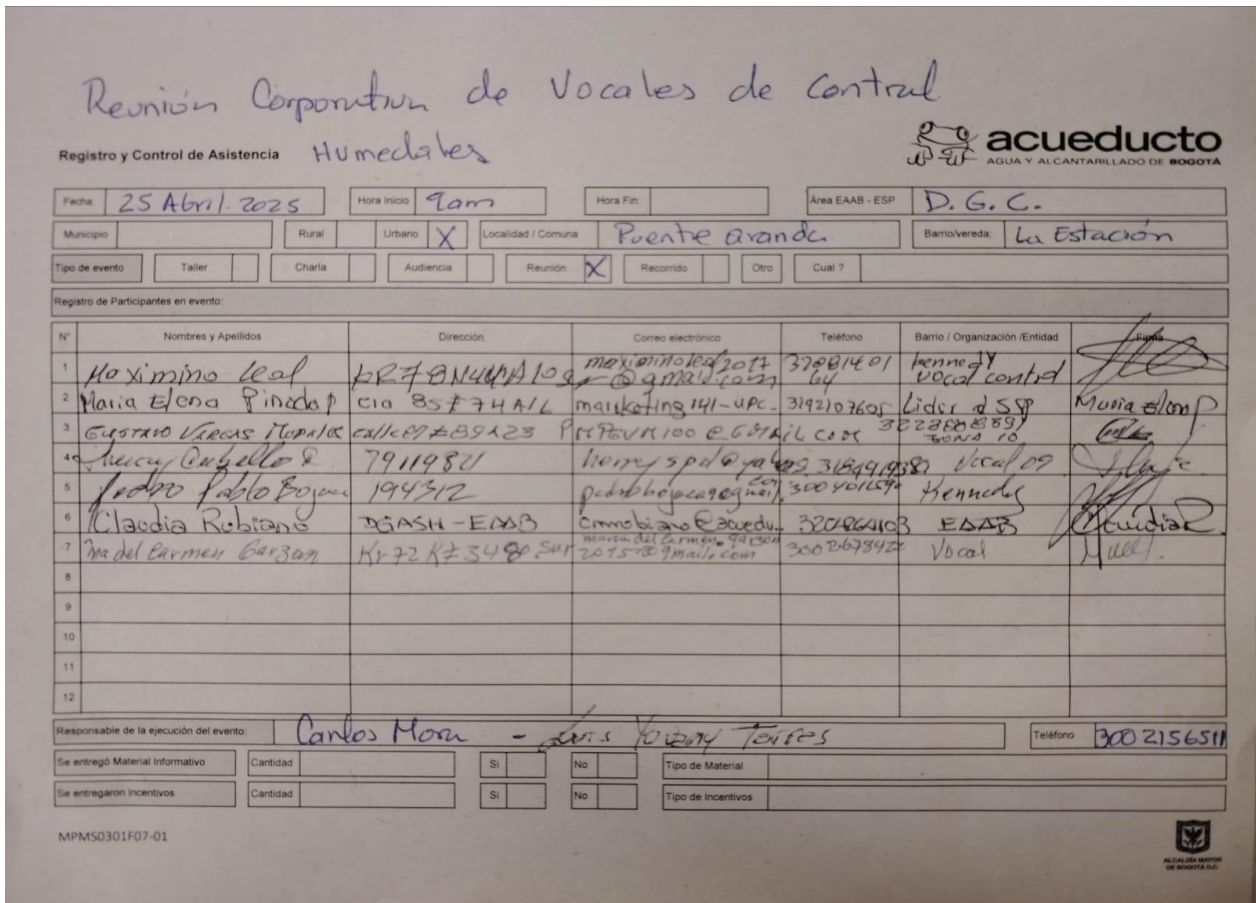 Reunión Corporativa de Vocales de Control
Registro y Control de Asistencia Humedales
acueducto
AGUA Y ALCANTARILLADO DE BOGOTÁ
Fecha: 25 Abril. 2025 Hora Inicio 9am Hora Fin: Área EAAB - ESP D. G. C.
Municipio Rural Urbano X Localidad / Comuna Puente aranda Barrio/vereda: La Estación
Tipo de evento Taller Charla Audiencia Reunión X Recorrido Otro Cual ?
Registro de Participantes en evento:
N° Nombres y Apellidos Dirección Correo electrónico Teléfono Barrio / Organización /Entidad Firma
1 Maximino Leal maximinoleal2017 @gmail.com 32081401 64 kennedy vocal control
2 Maria Elena Pinedo P 85 # 74A 141-UPC. 3192107605 Lider d SP Maria Elena P
3 GUSTAVO VARGAS # 89A23 PMPGVM100@GMAIL.COM ZONA 10
4 7911982 Vocal 09
5 Pedro Pablo 194312 Kennedy
6 Claudia Rubiano DGASH-EAAB EAAB ClaudiaR
7 Ma del Carmen Garzon Kr 72 K # 34 Sur maria del carmen. garzon 2015@gmail.com 3002678422 Vocal
8
9
10
11
12
Responsable de la ejecución del evento: Carlos Mora - Luis Torres Teléfono 3002156511
Se entregó Material Informativo Cantidad Si No Tipo de Material
Se entregaron Incentivos Cantidad Si No Tipo de Incentivos
MPMS0301F07-01
ALCALDÍA MAYOR
DE BOGOTÁ D.C.